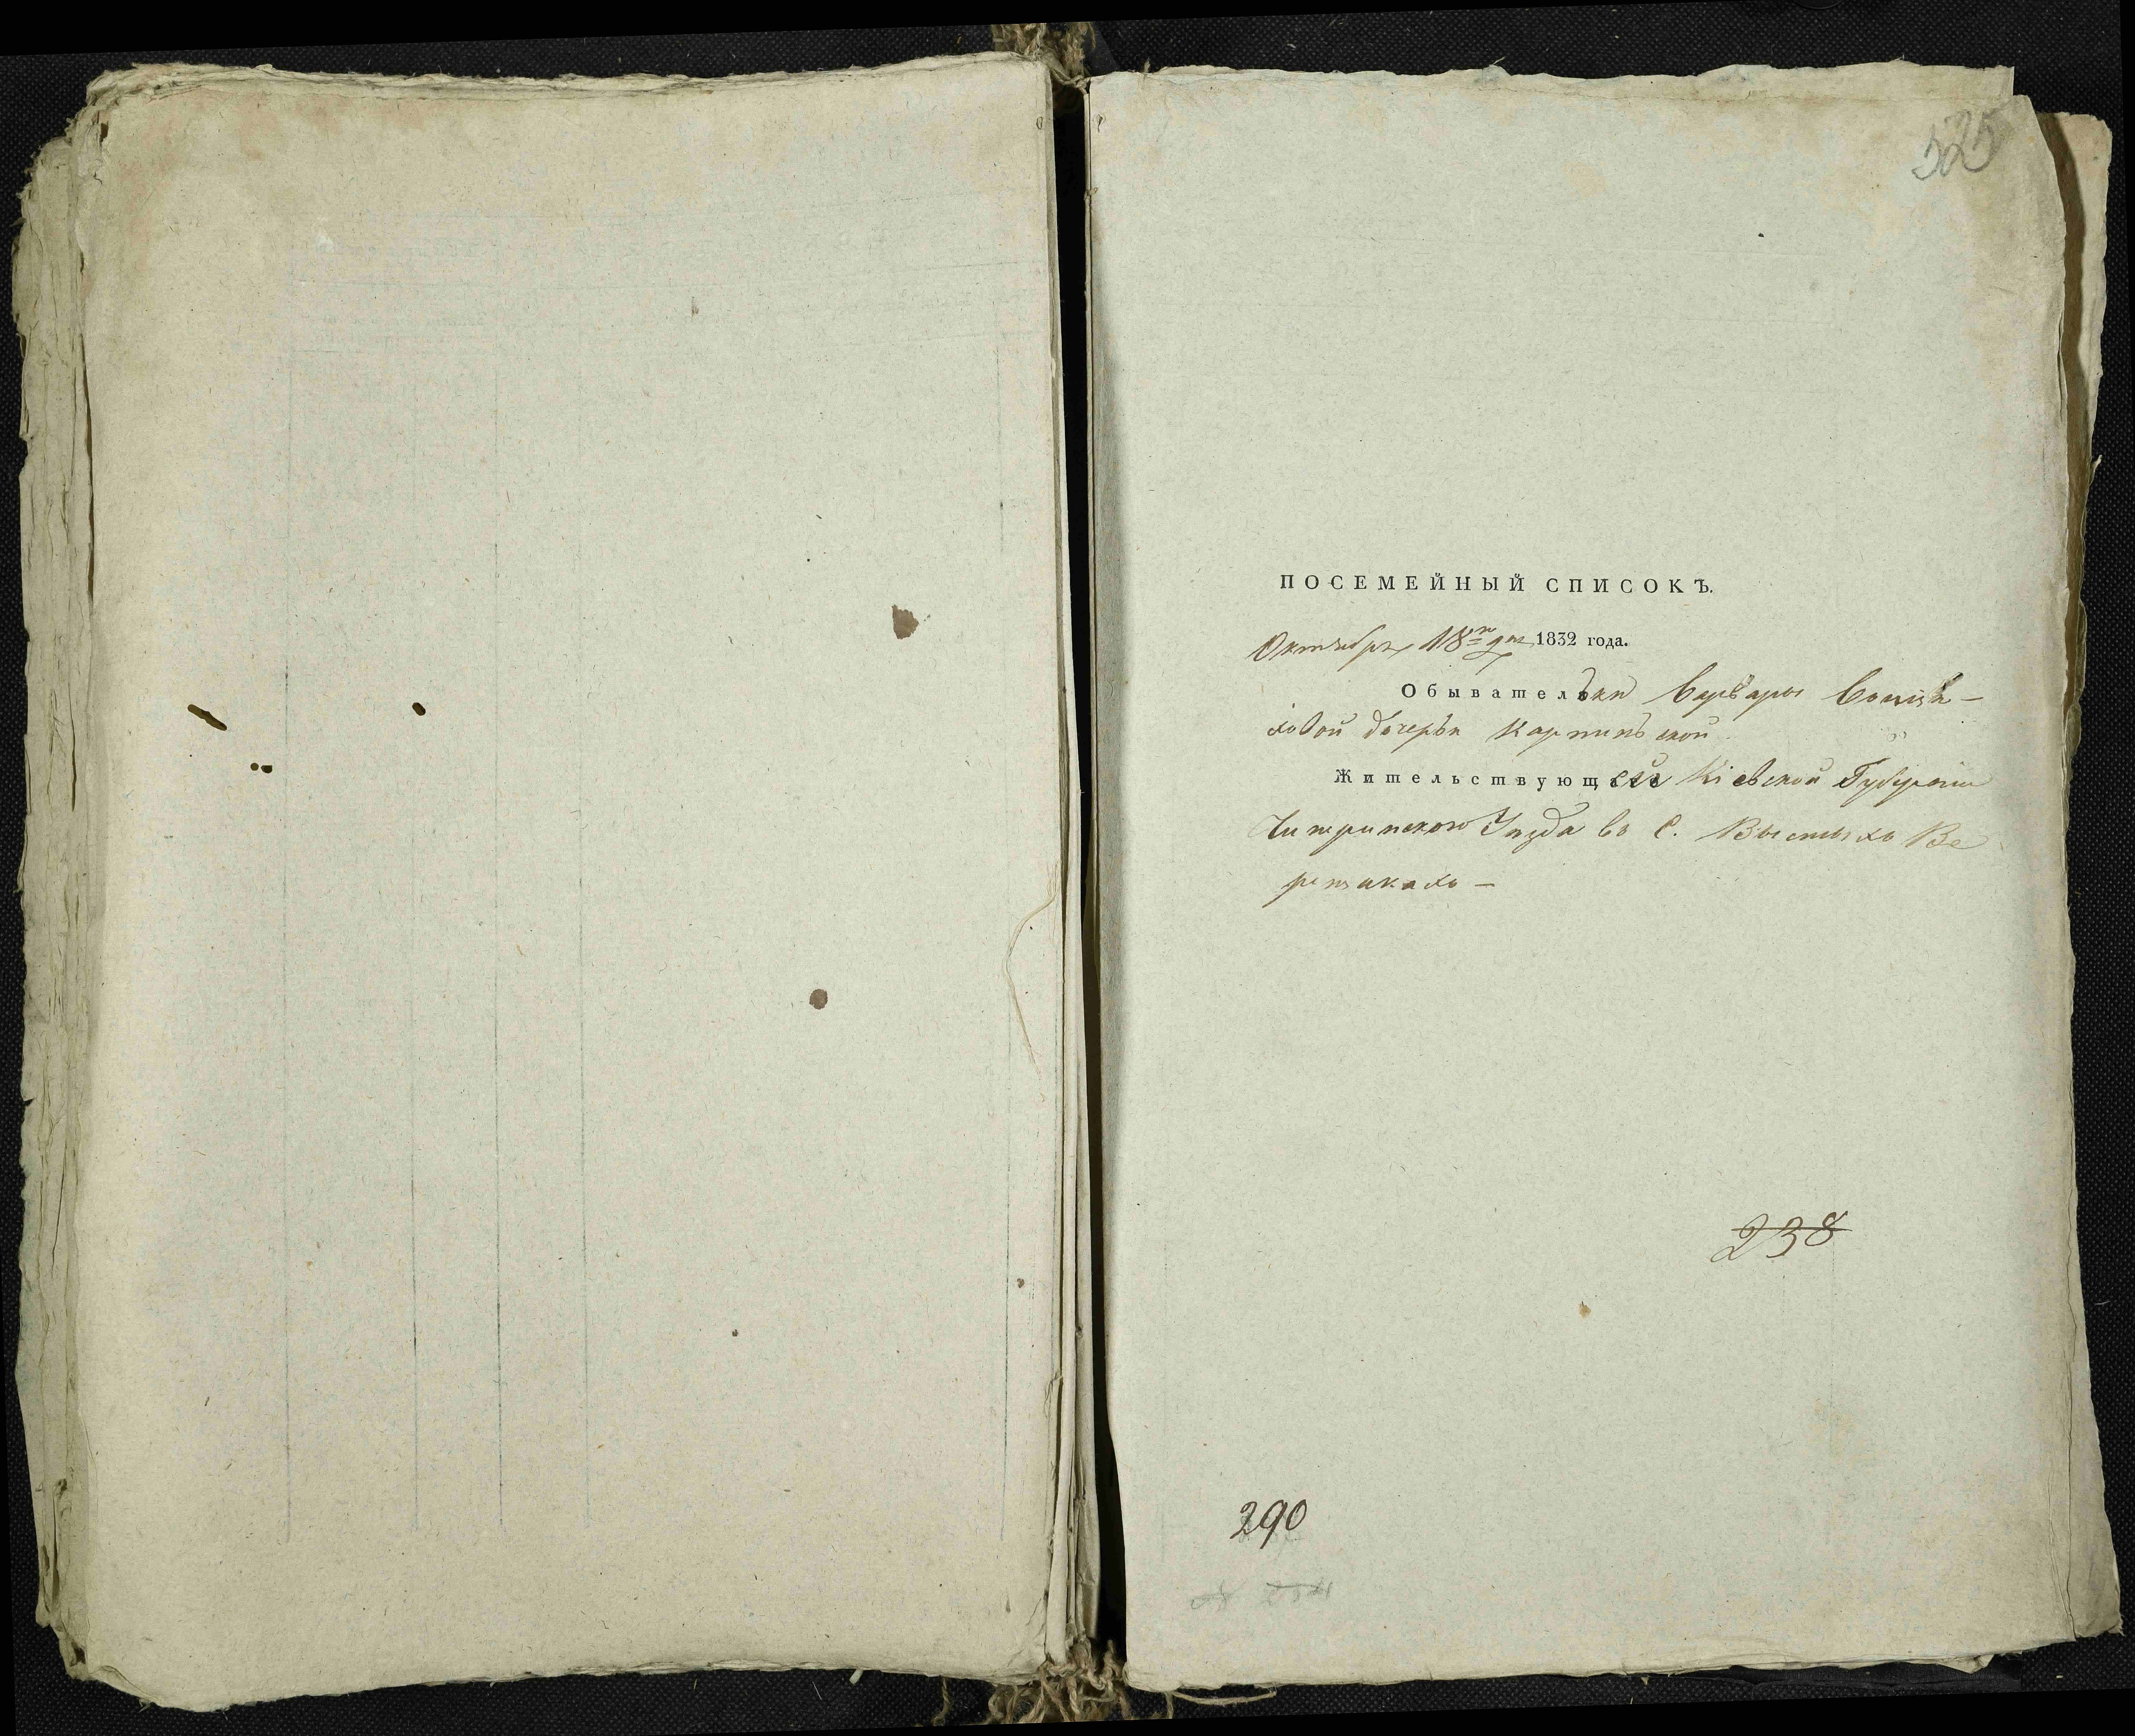 525
ПОСЕМЕЙНЫЙ СПИСОКЪ.
Октября 18го дня 1832 года.
Обывательки Варвары Войцѣ-
ховой дочерѣ Карпинской
Жительствующей Кіевской Губерніи
Чигринского Уѣзда въ С. Высшыхъ Ве
рещакахъ —
238
290